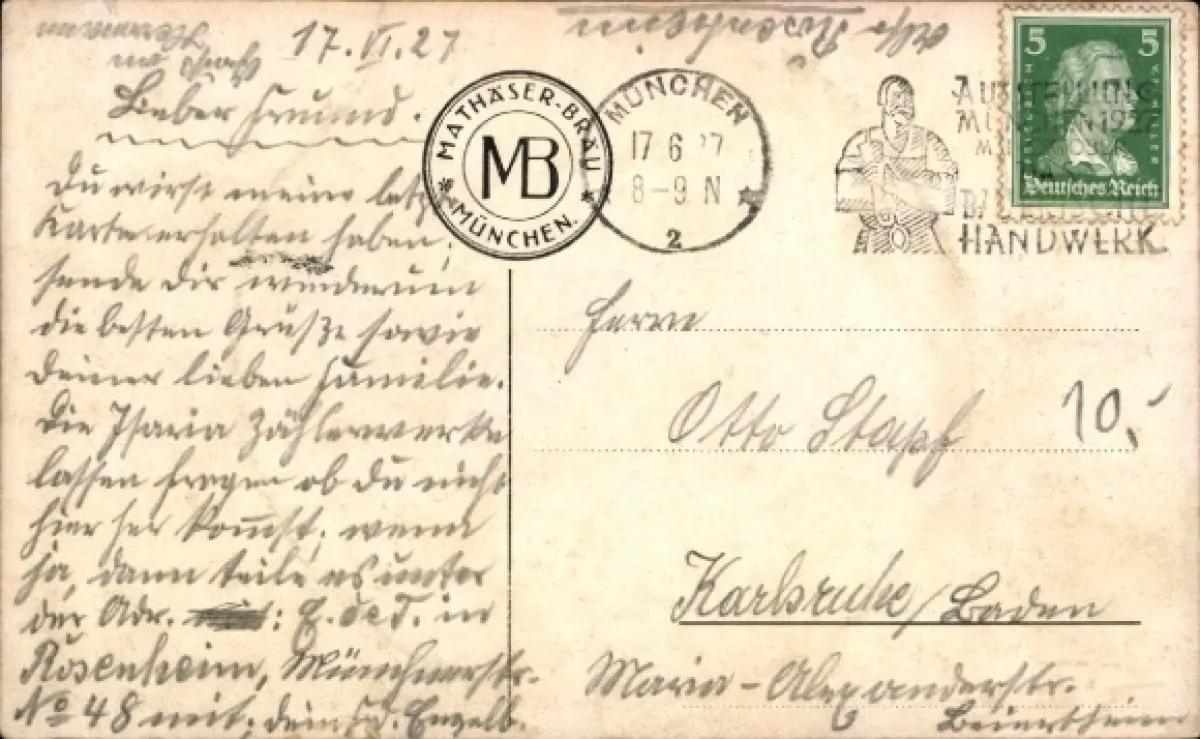 17. VI. 27
Lieber Freund.
Du wirst meine letzte
Karte erhalten haben,
sende Dir wiederum
die besten Grüße sowie
deiner lieben Familie.
Die Isaria Zählerwerke
lassen fragen ob du nicht
hier her kommst; wenn
ja, dann teile es unter
der Adr. : E. in
Rosenheim, Münchnerstr.
No 48 mit; dein
MATHÄSER-BRÄU
MB
MÜNCHEN.
MÜNCHEN
17 6 27
8-9 N
2
AUSSTELLUNG
MÜNCHEN 1927
HANDWERK
5 5
Deutsches Reich
Herrn
Otto Stapf
10,-
Karlsruhe / Baden
Maria-Alexanderstr.
Beiertheim